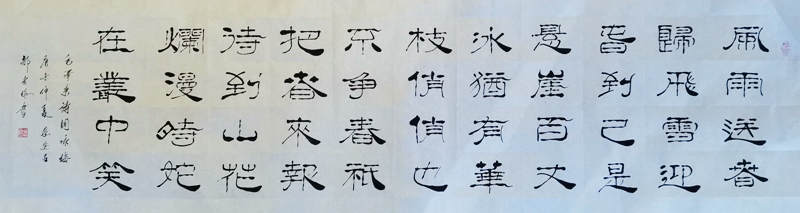 風雨送春
歸飛雪迎
春到已是
懸崖百丈
冰猶有華
枝俏俏也
不争春祇
把春來報
待到山花
爛漫時她
在叢中笑
毛澤東詩詞咏梅
庚子仲夏
書